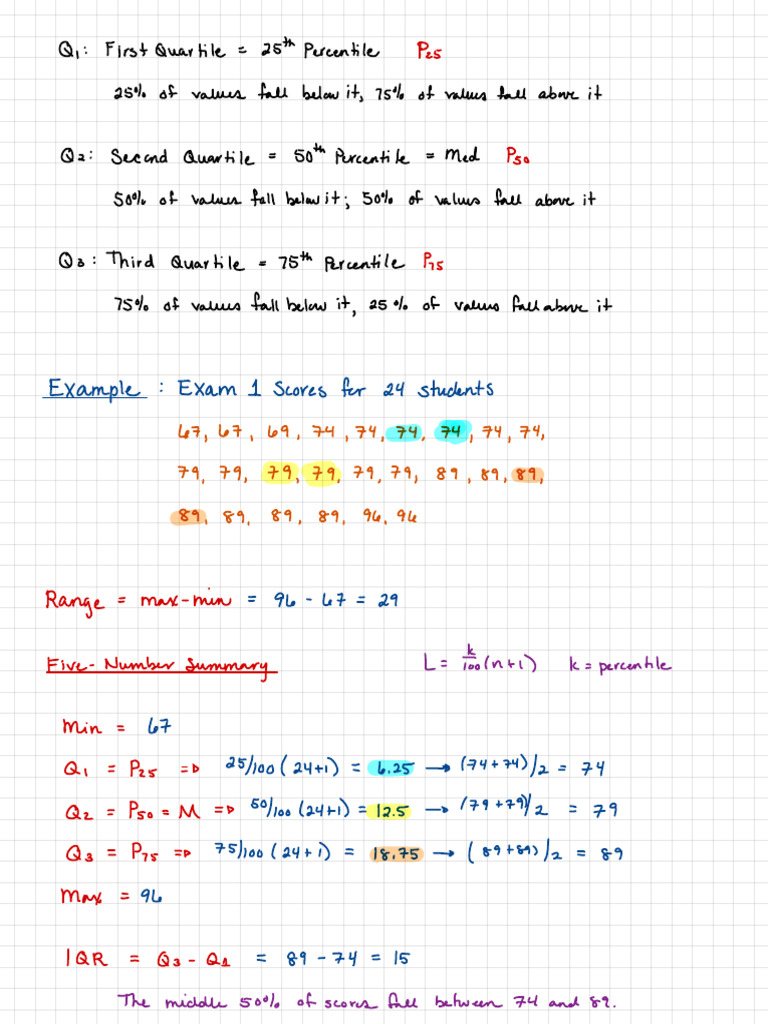 Q1: First Quartile = 25th Percentile P25
25% of values fall below it, 75% of values fall above it
Q2: Second Quartile = 50th Percentile = Med P50
50% of values fall below it; 50% of values fall above it
Q3: Third Quartile = 75th Percentile P75
75% of values fall below it, 25% of values fall above it
Example: Exam 1 Scores for 24 students
67, 67, 69, 74, 74, 74, 74, 74, 74,
79, 79, 79, 79, 79, 79, 89, 89, 89,
89, 89, 89, 89, 96, 96
Range = max-min = 96 - 67 = 29
Five-Number Summary L = k/100 (n+1) k = percentile
Min = 67
Q1 = P25 => 25/100 (24+1) = 6.25 → (74+74)/2 = 74
Q2 = P50 = M => 50/100 (24+1) = 12.5 → (79+79)/2 = 79
Q3 = P75 => 75/100 (24+1) = 18.75 → (89+89)/2 = 89
Max = 96
IQR = Q3 - Q1 = 89 - 74 = 15
The middle 50% of scores fall between 74 and 89.